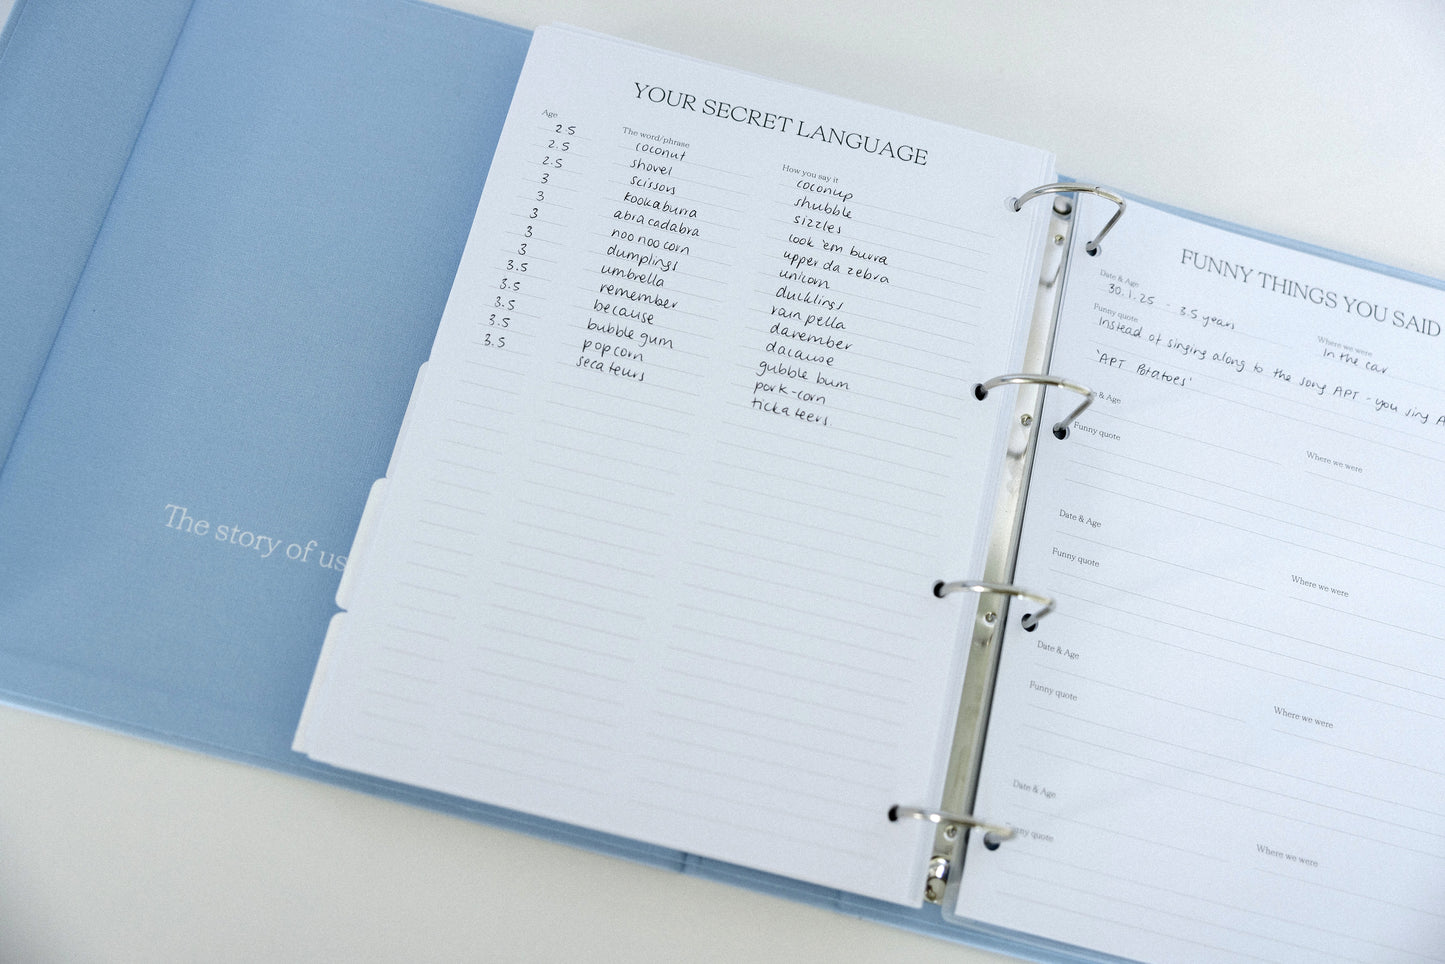 The story of us
YOUR SECRET LANGUAGE
Age The word/phrase How you say it
2.5 coconut coconup
2.5 shovel shubble
2.5 scissors sizzles
3 kookaburra cook 'em burra
3 abracadabra upper da zebra
3 noo noo corn unicorn
3 dumplings ducklings
3 umbrella rain pella
3.5 remember darember
3.5 because dacause
3.5 bubble gum gubble bum
3.5 popcorn pork-corn
3.5 secateurs tickateers.
FUNNY THINGS YOU SAID
Date & Age
30.1.25 - 3.5 years
Where we were
In the car
Funny quote
Instead of singing along to the song APT - you sing
'APT Potatoes'
& Age
Where we were
Funny quote
Date & Age
Where we were
Funny quote
Date & Age
Where we were
Funny quote
Date & Age
Where we were
Funny quote